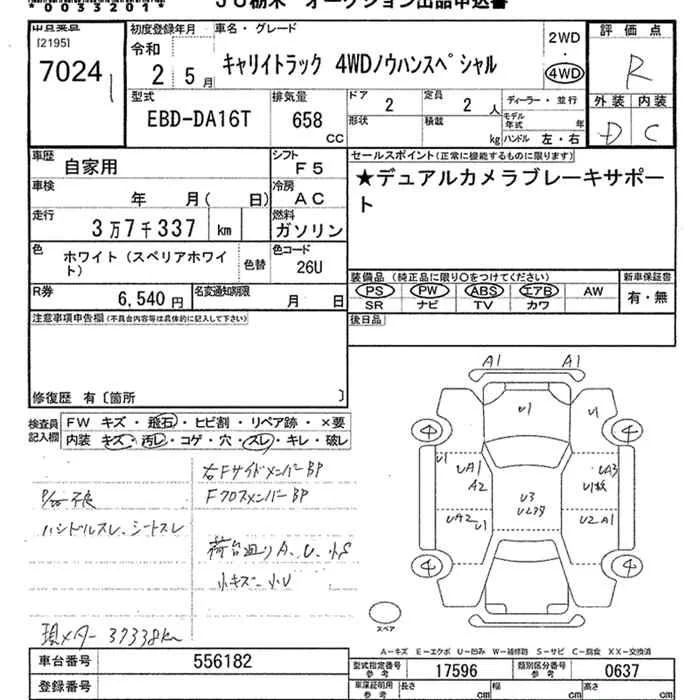 *0053201*
JU栃木 オークション出品申込書
[2195]
7024
初度登録年月
令和
2 5月
車名・グレード
キャリイトラック 4WDノウハンスペシャル
2WD
・
4WD
評価点
R
外装 内装
D C
型式
EBD-DA16T
排気量
658
CC
ドア
2
定員
2 人
形状
積載
kg
ディーラー・並行
モデル年式 年
ハンドル 左・右
車歴
自家用
シフト
F5
セールスポイント(正常に機能するものに限ります)
★デュアルカメラブレーキサポート
車検
年 月( 日)
冷房
AC
走行
3万7千337 km
燃料
ガソリン
色
ホワイト(スペリアホワイト)
色替
色コード
26U
装備品 (純正品に限り○をつけてください)
PS PW ABS エアB AW
SR ナビ TV カワ
新車保証書
有・無
R券
6,540 円
名変通知期限
月 日
後日品
注意事項申告欄(不具合内容等は具体的に記入して下さい)
修復歴 有〔箇所 〕
検査員記入欄
FW キズ・飛石・ヒビ割・リペア跡・×要
内装 キズ・汚レ・コゲ・穴・スレ・キレ・破レ
右Fサイドメンバー BP
Fクロスメンバー BP
ハンドルスレ、シートスレ
荷台廻りA、U、小S
小キズ 小U
現メーター 37338km
A1 A1
U1
U1
4 4
U1
UA1
A2
UA3
U3
UA2
U1
U2 A1
4 4
スペア
A―キズ E―エクボ U―凹み W―補修跡 S―サビ C―腐食 XX―交換済
車台番号
556182
型式指定番号
参考
17596
類別区分番号
参考
0637
登録番号
車庫証明用
参考
長さ cm
幅 cm
高さ cm